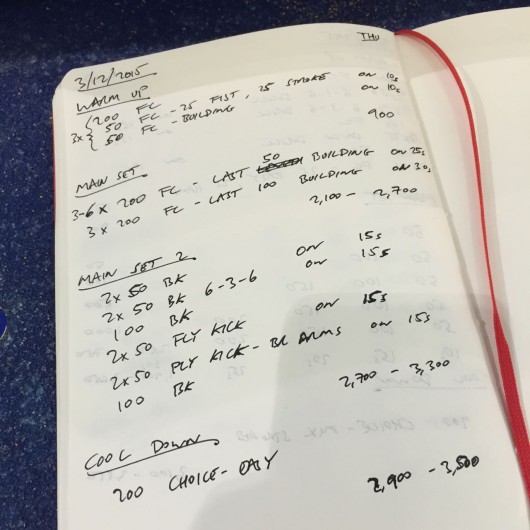 THU
3/12/2015
WARM UP
3x { 200 FC
50 FC - 25 FIST, 25 STROKE ON 10s
50 FC - BUILDING ON 10s
900
MAIN SET
3-6 x 200 FC - LAST 50 BUILDING ON 25s
3 x 200 FC - LAST 100 BUILDING ON 30s
2,100 - 2,700
MAIN SET 2
2x 50 BK ON 15s
2x 50 BK 6-3-6 ON 15s
100 BK
2x 50 FLY KICK ON 15s
2x 50 FLY KICK - BR ARMS ON 15s
100 BK
2,700 - 3,300
COOL DOWN
200 CHOICE - EASY
2,900 - 3,500